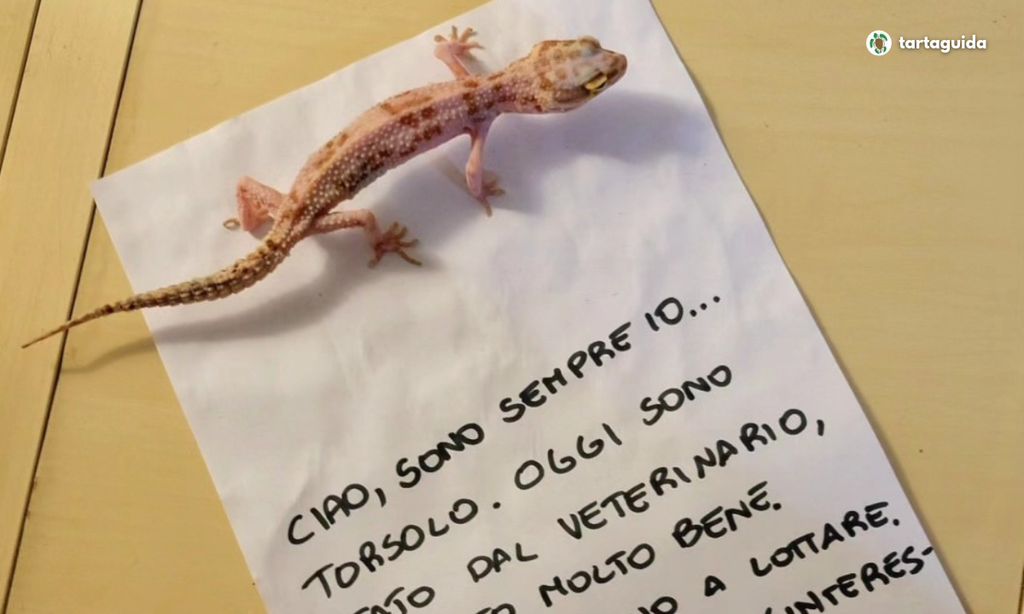 tartaguida
CIAO, SONO SEMPRE IO...
TORSOLO. OGGI SONO
DAL VETERINARIO,
MOLTO BENE.
A LOTTARE.